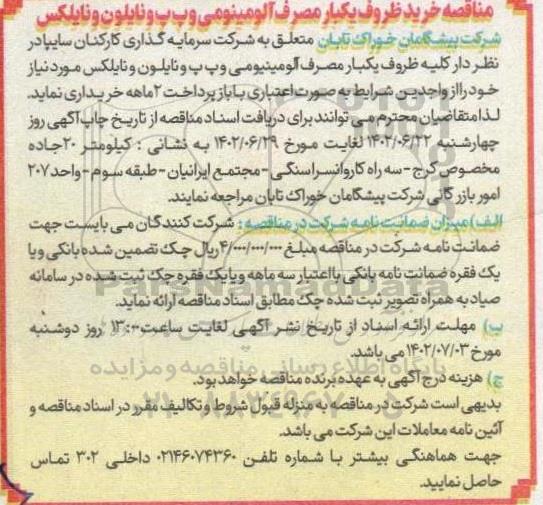 مناقصه خرید ظروف یکبار مصرف آلومینومی و پ پ و نایلون و نایلکس
شرکت پیشگامان خوراک تابان متعلق به شرکت سرمایه گذاری کارکنان سایپا در
نظر دار کلیه ظروف یکبار مصرف آلومینیومی و پ پ و نایلون و نایلکس مورد نیاز
خود را از واجدین شرایط به صورت اعتباری با باز پرداخت ۲ ماهه خریداری نماید.
لذا متقاضیان محترم می توانند برای دریافت اسناد مناقصه از تاریخ چاپ آگهی روز
چهارشنبه ۱۴۰۲/۰۶/۲۲ لغایت مورخ ۱۴۰۲/۰۶/۲۹ به نشانی : کیلومتر ۲۰ جاده
مخصوص کرج - سه راه کاروانسراسنگی - مجتمع ایرانیان - طبقه سوم - واحد ۲۰۷
امور بازرگانی شرکت پیشگامان خوراک تابان مراجعه نمایند.
الف) میزان ضمانت نامه شرکت در مناقصه : شرکت کنندگان می بایست جهت
ضمانت نامه شرکت در مناقصه مبلغ ۴/۰۰۰/۰۰۰/۰۰۰ ریال چک تضمین شده بانکی و یا
یک فقره ضمانت نامه بانکی با اعتبار سه ماهه و یا یک فقره چک ثبت شده در سامانه
صیاد به همراه تصویر ثبت شده چک مطابق اسناد مناقصه ارائه نماید.
ب) مهلت ارائه اسناد از تاریخ نشر آگهی لغایت ساعت ۱۳:۰۰ روز دوشنبه
مورخ ۱۴۰۲/۰۷/۰۳ می باشد.
ج) هزینه درج آگهی به عهده برنده مناقصه خواهد بود.
بدیهی است شرکت در مناقصه به منزله قبول شروط و تکالیف مقرر در اسناد مناقصه و
آئین نامه معاملات این شرکت می باشد.
جهت هماهنگی بیشتر با شماره تلفن ۰۲۱۴۶۰۷۴۳۶۰ داخلی ۳۰۲ تماس
حاصل نمایید.
ParsNamadData
پایگاه اطلاع رسانی مناقصه و مزایده